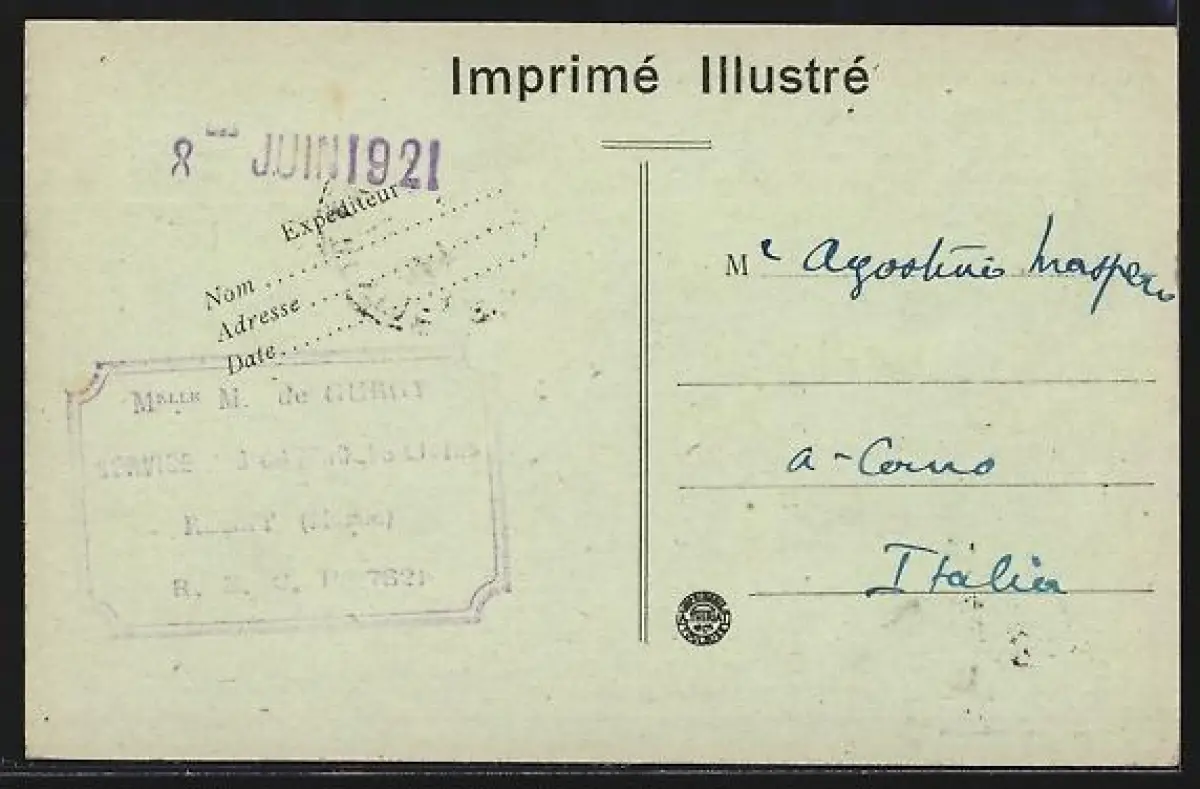 Imprimé Illustré
8 JUIN 1921
Expéditeur
Nom
Adresse
Date
Melle M. de
SERVICE
R. 7621
M r Agostino Maspero
a - Como
Italia